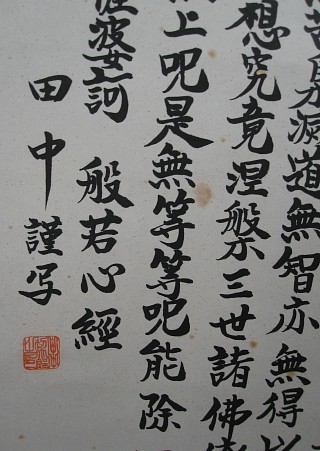 苦集滅道無智亦無得以
想究竟涅槃三世諸佛
上呪是無等等呪能除
婆訶 般若心經
田中謹写